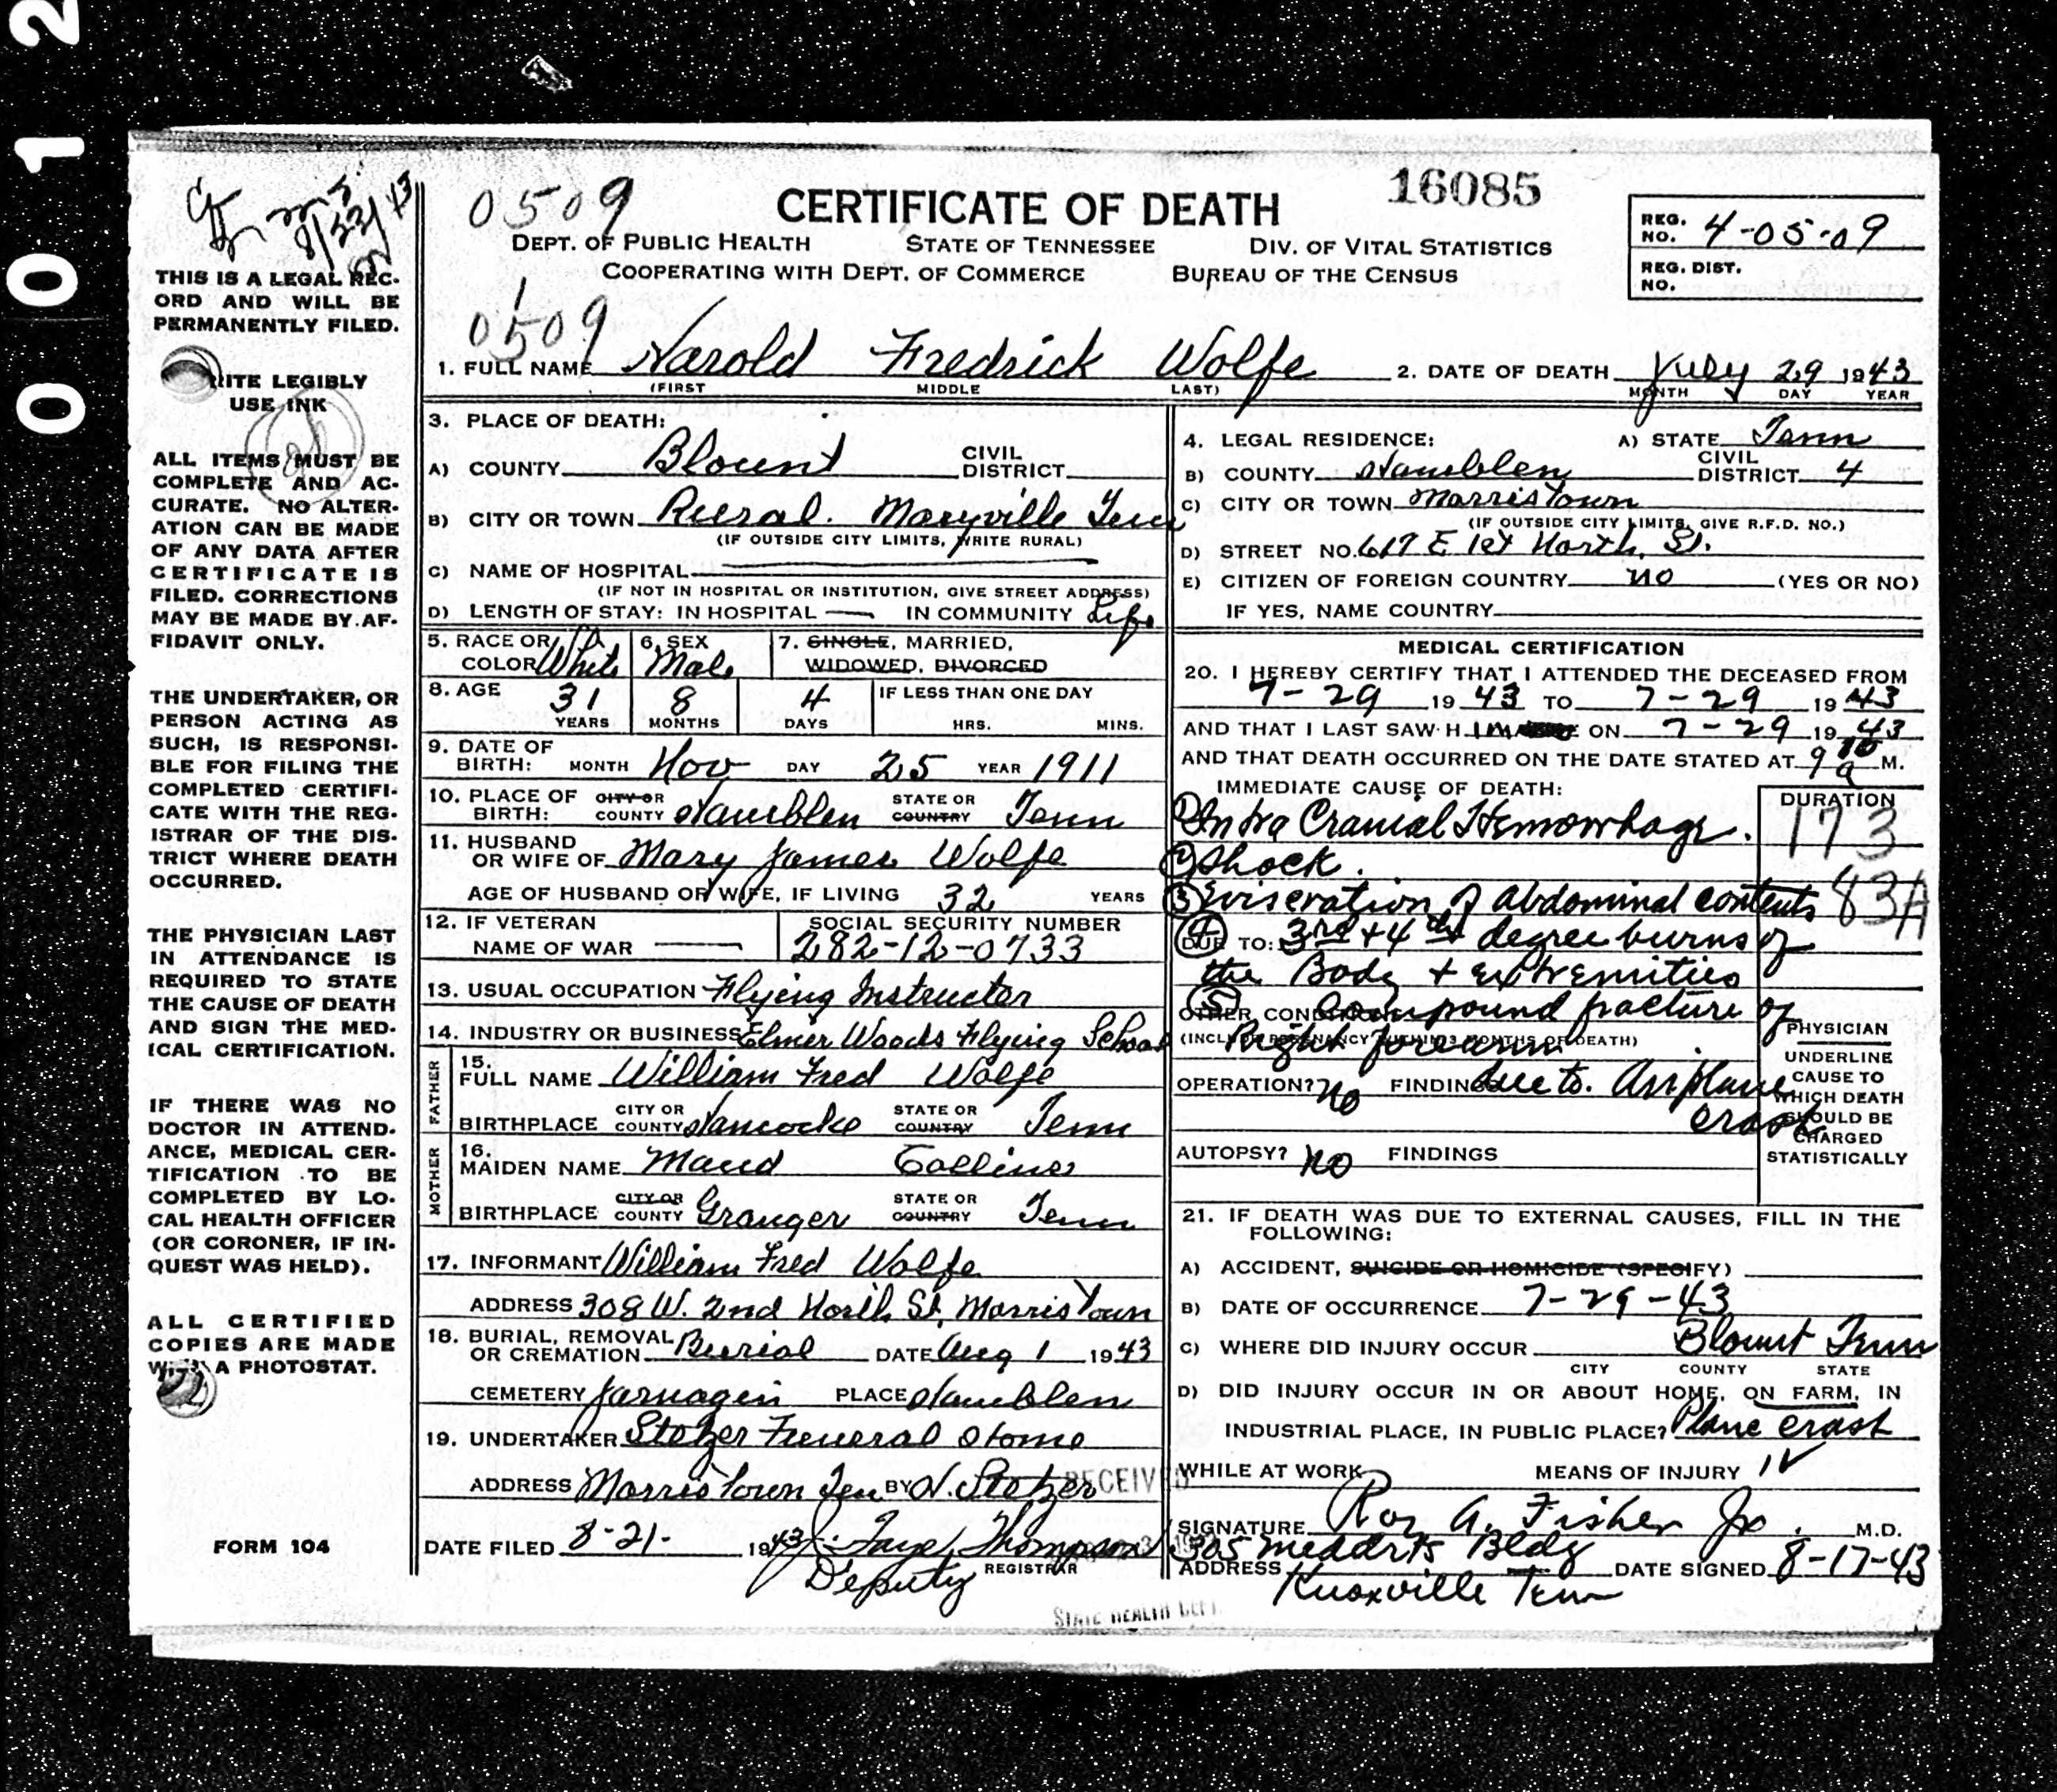 0012
0509
CERTIFICATE OF DEATH
16085
DEPT. OF PUBLIC HEALTH STATE OF TENNESSEE DIV. OF VITAL STATISTICS
COOPERATING WITH DEPT. OF COMMERCE BUREAU OF THE CENSUS
REG. NO. 4-05-09
REG. DIST. NO.
8/23/43
THIS IS A LEGAL REC-
ORD AND WILL BE
PERMANENTLY FILED.
RITE LEGIBLY
USE INK
ALL ITEMS MUST BE
COMPLETE AND AC-
CURATE. NO ALTER-
ATION CAN BE MADE
OF ANY DATA AFTER
CERTIFICATE IS
FILED. CORRECTIONS
MAY BE MADE BY AF-
FIDAVIT ONLY.
THE UNDERTAKER, OR
PERSON ACTING AS
SUCH, IS RESPONSI-
BLE FOR FILING THE
COMPLETED CERTIFI-
CATE WITH THE REG-
ISTRAR OF THE DIS-
TRICT WHERE DEATH
OCCURRED.
THE PHYSICIAN LAST
IN ATTENDANCE IS
REQUIRED TO STATE
THE CAUSE OF DEATH
AND SIGN THE MED-
ICAL CERTIFICATION.
IF THERE WAS NO
DOCTOR IN ATTEND-
ANCE, MEDICAL CER-
TIFICATION TO BE
COMPLETED BY LO-
CAL HEALTH OFFICER
(OR CORONER, IF IN-
QUEST WAS HELD).
ALL CERTIFIED
COPIES ARE MADE
A PHOTOSTAT.
FORM 104
1
0509
1. FULL NAME Harold Fredrick Wolfe 2. DATE OF DEATH July 29 1943
(FIRST MIDDLE LAST) MONTH DAY YEAR
3. PLACE OF DEATH:
A) COUNTY Blount CIVIL DISTRICT
B) CITY OR TOWN Rural. Maryville Tenn
(IF OUTSIDE CITY LIMITS, WRITE RURAL)
C) NAME OF HOSPITAL
(IF NOT IN HOSPITAL OR INSTITUTION, GIVE STREET ADDRESS)
D) LENGTH OF STAY: IN HOSPITAL — IN COMMUNITY Life
5. RACE OR COLOR White 6. SEX Male 7. SINGLE, MARRIED,
WIDOWED, DIVORCED
8. AGE 31 YEARS 8 MONTHS 4 DAYS IF LESS THAN ONE DAY
HRS. MINS.
9. DATE OF BIRTH: MONTH Nov DAY 25 YEAR 1911
10. PLACE OF BIRTH: CITY OR COUNTY Hamblen STATE OR COUNTRY Tenn
11. HUSBAND OR WIFE OF Mary James Wolfe
AGE OF HUSBAND OR WIFE, IF LIVING 32 YEARS
12. IF VETERAN NAME OF WAR — SOCIAL SECURITY NUMBER 282-12-0733
13. USUAL OCCUPATION Flying Instructor
14. INDUSTRY OR BUSINESS Elmer Woods Flying School
FATHER
15. FULL NAME William Fred Wolfe
BIRTHPLACE CITY OR COUNTY Hancocke STATE OR COUNTRY Tenn
MOTHER
16. MAIDEN NAME Maud Collins
BIRTHPLACE CITY OR COUNTY Granger STATE OR COUNTRY Tenn
17. INFORMANT William Fred Wolfe
ADDRESS 308 W. 2nd North St, Morristown
18. BURIAL, REMOVAL OR CREMATION Burial DATE Aug 1 1943
CEMETERY Jarnagin PLACE Hamblen
19. UNDERTAKER Stetzer Funeral Home
ADDRESS Morristown Ten BY H. Stetzer
RECEIVED
DATE FILED 8-21- 1943 J. Faye Thompson
Deputy REGISTRAR
STATE HEALTH DEPT.
4. LEGAL RESIDENCE: A) STATE Tenn
B) COUNTY Hamblen CIVIL DISTRICT 4
C) CITY OR TOWN Morristown
(IF OUTSIDE CITY LIMITS, GIVE R.F.D. NO.)
D) STREET NO. 617 E 1st North. St.
E) CITIZEN OF FOREIGN COUNTRY no (YES OR NO)
IF YES, NAME COUNTRY
MEDICAL CERTIFICATION
20. I HEREBY CERTIFY THAT I ATTENDED THE DECEASED FROM
7-29 1943 TO 7-29 1943
AND THAT I LAST SAW H IM ON 7-29 1943
AND THAT DEATH OCCURRED ON THE DATE STATED AT 9 10 a M.
IMMEDIATE CAUSE OF DEATH: DURATION
① Intra Cranial Hemorrhage. 173
② Shock.
③ Eviseration of abdominal contents 83A
④ DUE TO: 3rd + 4th degree burns of
the Body + extremities
⑤ OTHER CONDITIONS Compound fracture of
(INCLUDE PREGNANCY WITHIN 3 MONTHS OF DEATH) Right forearm
OPERATION? No FINDINGS due to. Airplane
crash
AUTOPSY? No FINDINGS
PHYSICIAN
UNDERLINE
CAUSE TO
WHICH DEATH
SHOULD BE
CHARGED
STATISTICALLY
21. IF DEATH WAS DUE TO EXTERNAL CAUSES, FILL IN THE
FOLLOWING:
A) ACCIDENT, SUICIDE OR HOMICIDE (SPECIFY)
B) DATE OF OCCURRENCE 7-29-43
C) WHERE DID INJURY OCCUR Blount Tenn
CITY COUNTY STATE
D) DID INJURY OCCUR IN OR ABOUT HOME, ON FARM, IN
INDUSTRIAL PLACE, IN PUBLIC PLACE? Plane crash
WHILE AT WORK MEANS OF INJURY
SIGNATURE Roy A. Fisher Jr. M.D.
ADDRESS 305 Med Arts Bldg DATE SIGNED 8-17-43
Knoxville Tenn